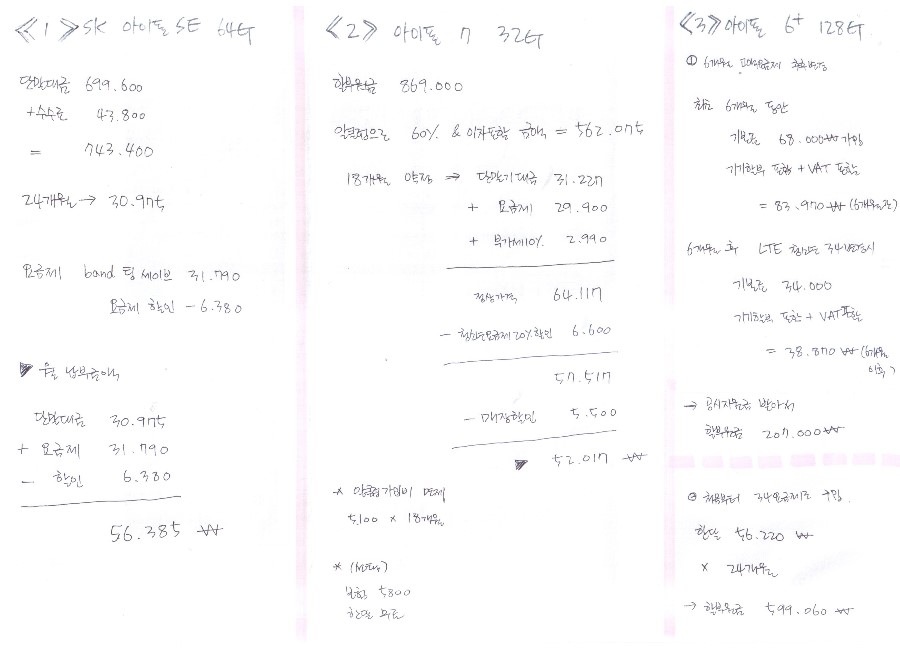 <1> SK 아이폰 SE 64G
단말대금 699.600
+수수료 43.800
= 743.400
24개월 → 30.975
요금제 band 팅 세이브 31.790
요금제 할인 - 6.380
▼ 월 납부금액
단말대금 30.975
+ 요금제 31.790
- 할인 6.380
56.385 ₩
<2> 아이폰 7 32G
할부원금 869.000
60% & 이자포함 금액 = 562.075
18개월 약정 ⇒ 단말기대금 31.227
+ 요금제 29.900
+ 부가세10% 2.990
정상가격 64.117
- 청소년요금제 20% 할인 6.600
57.517
- 매장할인 5.500
▼ 52.017 ₩
* 알클럽가입비 면제
5,100 x 18개월
*
보험 5800
한달 무료
<3> 아이폰 6+ 128G
① 6개월
최초 6개월 동안
기본료 68.000₩ 가입
기기할부 포함 + VAT 포함
= 83.970 ₩ (6개월간)
6개월 후 LTE 청소년 34 변경시
기본료 34.000
기기할부 포함 + VAT포함
= 38.870 ₩ (6개월
이후)
→ 공시지원금 받아서
할부원금 207.000₩
② 처음부터 34요금제로 구입.
한달 56.220 ₩
x 24개월
→ 할부원금 599.060 ₩